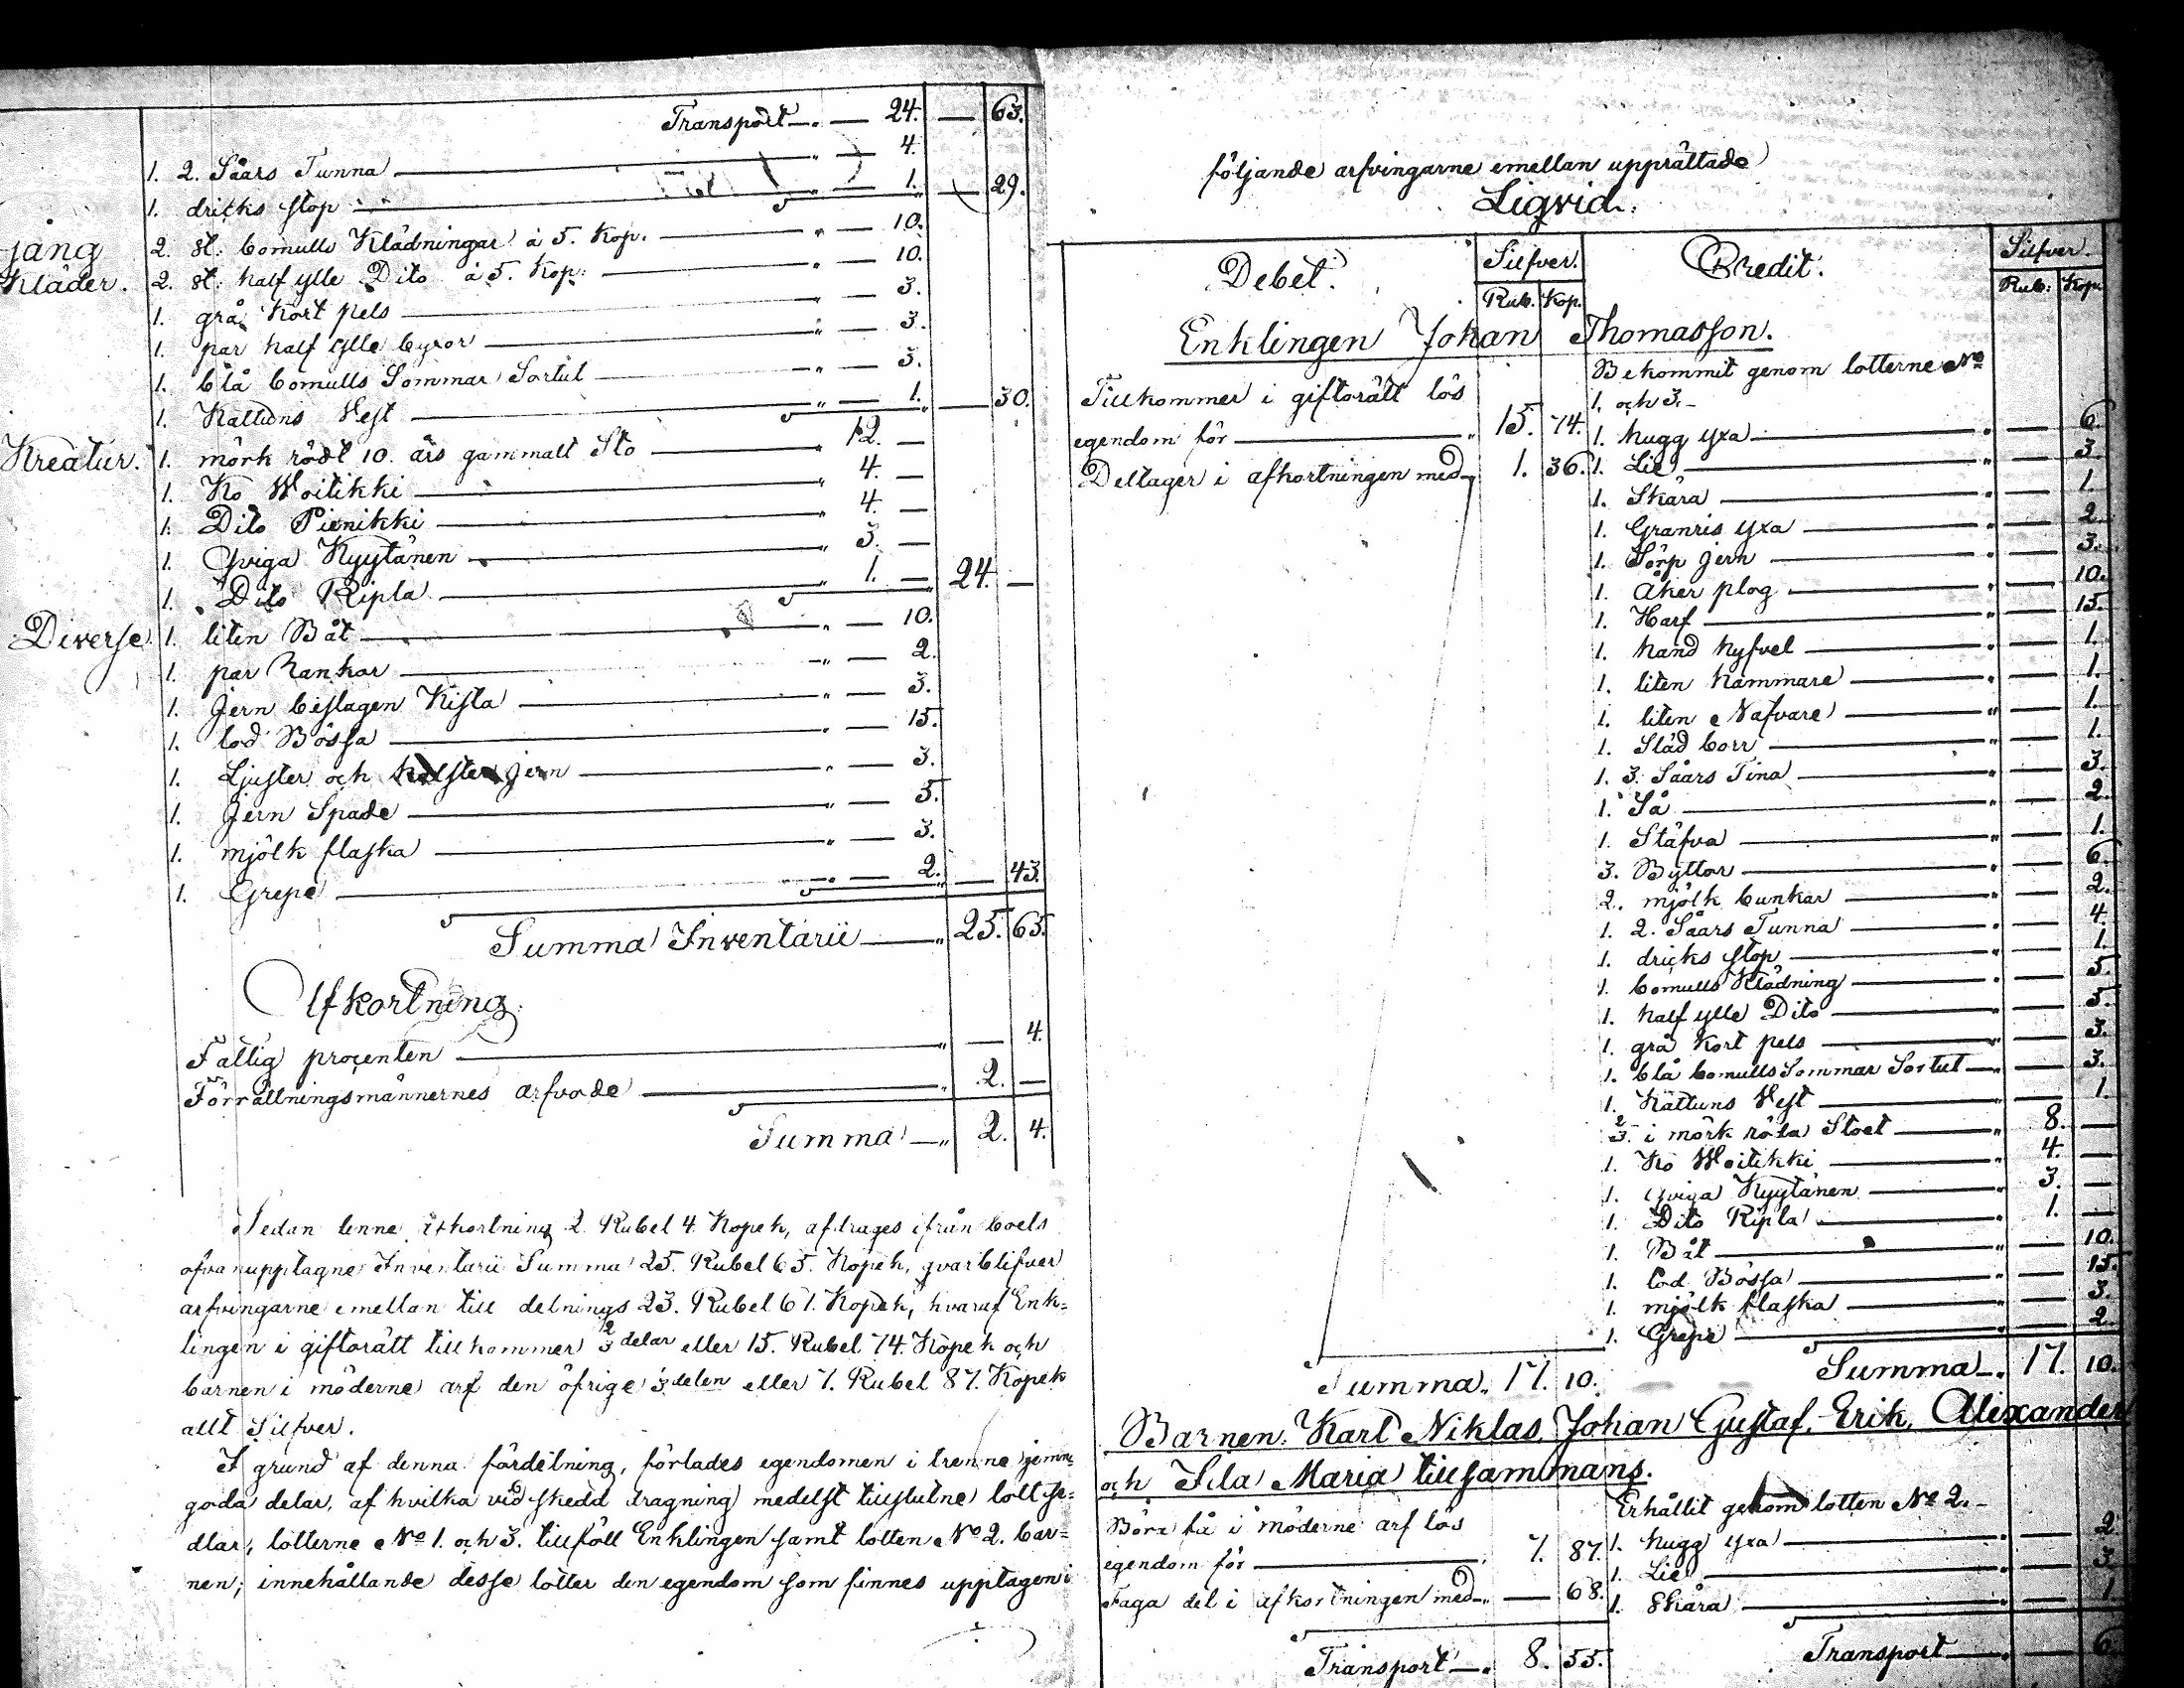 Transport 24. — 63.
1. 2. Såars Tunna — 4.
1. dricks stop — 1. — 29.
gång 2. st: bomulls Klädningar á 5. Kop. — 10.
Kläder. 2. st: half ylle Dito á 5. Kop: — 10.
1. grå Kort pels — 3.
1. par half ylle byxor — 3.
1. blå bomulls Sommar Sortut — 3.
1. Kattuns Vest — 1. — 30.
Kreatur. 1. mörk rödt 10. års gammalt Sto 12. —
1. Ko Woitikki 4. —
1. Dito Pienikki 4. —
1. Qviga Kyytänen 3. —
1. Dito Ripla 1. — 24. —
Diverse. 1. liten Båt — 10.
1. par Rankor — 2.
1. Jern beslagen Kista — 3.
1. lod Bössa — 15.
1. Ljuster och jern — 3.
1. Jern Spade — 5.
1. mjölk flaska — 3.
1. Grepe — 2. — 43.
Summa Inventarii 25. 65.
Afkortning.
Fattig procenten — 4.
Förrättningsmännernes arfvode 2. —
Summa 2. 4.
Sedan denne afkortning 2. Rubel 4. Kopek, afdrages ifrån boets
ofvanupptagne Inventarii Summa 25. Rubel 65. Kopek, qvarblifver
arfvingarne emellan till delnings 23. Rubel 61. Kopek, hvaraf Enk=
lingen i giftorätt tillkommer 2/3 delar eller 15. Rubel 74. Kopek och
barnen i möderne arf den öfrige 3. delen eller 7. Rubel 87. Kopek
allt Silfver.
I grund af denna fördelning, förlades egendomen i trenne jemn=
goda delar, af hvilka vid skedd dragning medelst tillslutne lott se=
dlar, lotterne No 1. och 3. tillföll Enklingen samt lotten No 2. bar=
nen; innehållande desse lotter den egendom som finnes upptagen i
följande arfvingarne emellan upprättade
Liqvid.
Debet. Silfver. Rub. Kop.
Credit. Silfver. Rub. Kop.
Enklingen Johan Thomasson.
Tillkommer i giftorätt lös
egendom för 15. 74.
Deltager i afkortningen med 1. 36.
Bekommit genom lotterne No
1. och 3.
1. hugg yxa — 6.
1. Lie — 3
1. Skära — 1.
1. Granris yxa — 2
1. Sörp jern — 3.
1. Åker plog — 10.
1. Harf — 15.
1. hand hyfvel — 1.
1. liten hammare — 1.
1. liten Nafvare — 1.
1. Städ borr — 1.
1. 3. Såars Tina — 3.
1. Så — 2.
1. Stäfva — 1.
3. Byttor — 6.
2. mjölk bunkar — 2.
1. 2. Såars Tunna — 4.
1. dricks stop — 1.
1. bomulls Klädning — 5.
1. half ylle Dito — 5.
1. grå Kort pels — 3.
1. blå bomulls Sommar Sortut — 3.
1. Kattuns Vest — 1.
2/3. i mörk röda Stoet 8. —
1. Ko Woitikki 4. —
1. Qviga Kyytänen 3. —
1. Dito Ripla 1. —
1. Båt — 10.
1. lod Bössa — 15.
1. mjölk flaska — 3.
1. Grepe — 2
Summa 17. 10.
Summa 17. 10.
Barnen: Karl Niklas, Johan Gustaf, Erik, Alexander
och Fila Maria tillsammans.
Böra få i möderne arf lös
egendom för 7. 87.
Taga del i afkortningen med — 68.
Transport 8. 55.
Erhållit genom lotten No 2.
1. hugg yxa — 2
1. Lie — 3.
1. Skära — 1
Transport — 6.